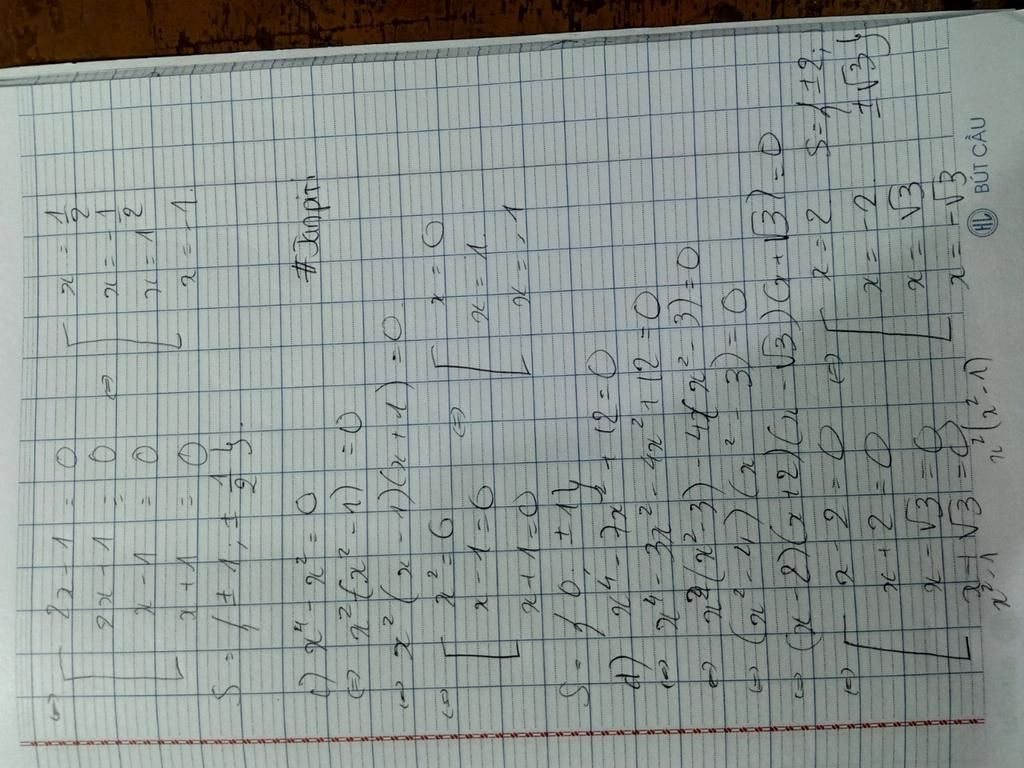 ⇔ [ 2x - 1 = 0 ⇔ [ x = 1/2
2x - 1 = 0 x = -1/2
x - 1 = 0 x = 1
x + 1 = 0 x = -1
S = { ±1, ± 1/2 }.
c) x⁴ - x² = 0
⇔ x² (x² - 1) = 0
⇔ x² (x - 1)(x + 1) = 0
⇔ [ x² = 0 ⇔ [ x = 0
x - 1 = 0 x = 1
x + 1 = 0 x = -1
S = { 0, ±1 }
d) x⁴ - 7x² + 12 = 0
⇔ x⁴ - 3x² - 4x² + 12 = 0
⇔ x² (x² - 3) - 4(x² - 3) = 0
⇔ (x² - 4)(x² - 3) = 0
⇔ (x - 2)(x + 2)(x - √3)(x + √3) = 0
⇔ [ x - 2 = 0 ⇔ [ x = 2 S = { ±2;
x + 2 = 0 x = -2 ±√3 }
x - √3 = 0 x = √3
x + √3 = 0 x = -√3
x² - 1 x² (x² - 1)
HL BÚT CẦU